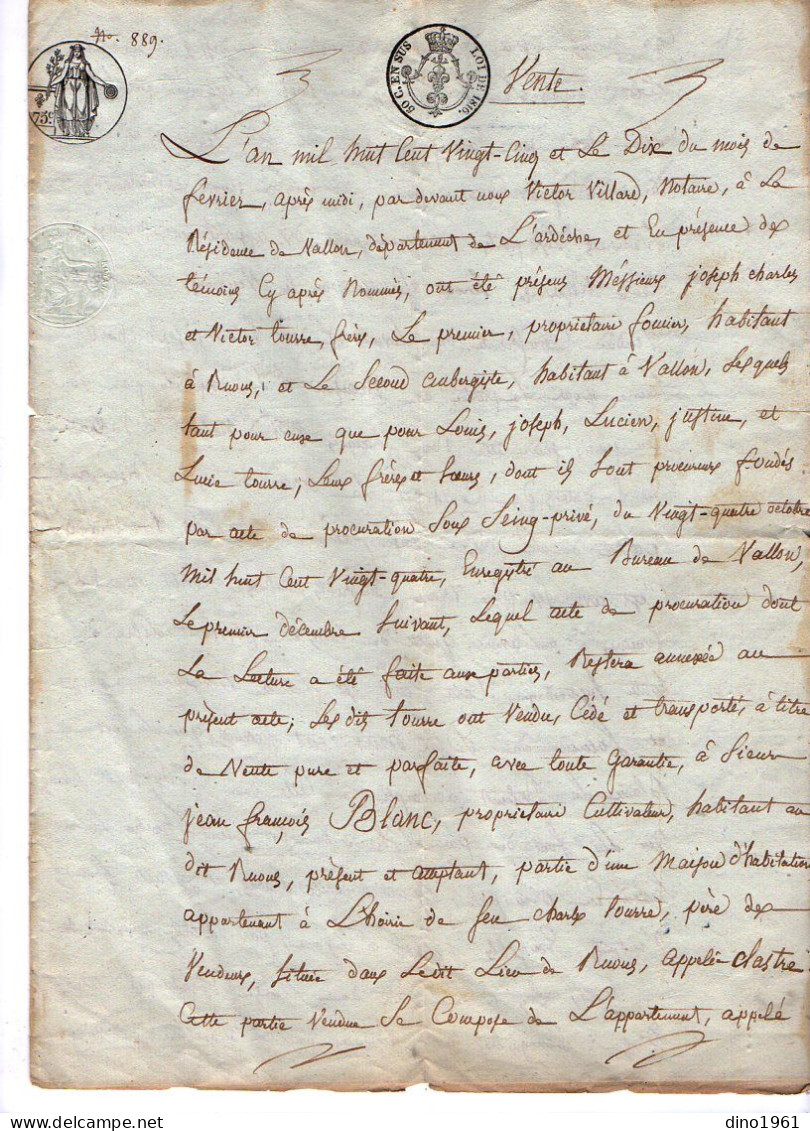 No. 889.
75c
50 C. EN SUS LOI DE 1816.
Vente.
L'an mil huit Cent Vingt-Cinq et Le Dix du mois de
fevrier, après midi, par devant nous Victor Villard, Notaire, à La
Résidence de Vallon, département de L'ardèche, et En présence des
témoins Cy après Nommés, ont été présens Méssieurs joseph charles
et Victor tourre, frères, Le premier, propriétaire foncier, habitant
à Ruous, et Le Second aubergiste, habitant à Vallon, Lesquels
tant pour eux que pour Louis, joseph, Lucien, justine, et
Lucie tourre, Leurs frères et Sœurs, dont ils Sont procureurs fondés
par acte de procuration Sous Seing-privé, du Vingt-quatre octobre
Mil huit Cent Vingt-quatre, Enregistré au Bureau de Vallon,
Le premier décembre Suivant, Lequel acte de procuration dont
La Lecture a été faite aux parties, Restera annexée au
présent acte; Les dits tourre ont Vendu, Cédé et transporté, à titre
de Vente pure et parfaite, avec toute Garantie, à Sieur
jean françois Blanc, propriétaire Cultivateur, habitant au
dit Ruous, présent et acceptant, partie d'une Maison d'habitation
appartenant à L'hoirie de feu charles tourre, père des
Vendeurs, Située dans Ledit Lieu de Ruous, appelée Clastre.
Cette partie Vendue Se Compose de L'appartement, appelé
dino1961